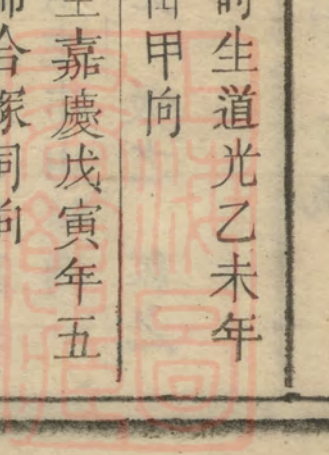 時生道光乙未年
甲向
生嘉慶戊寅年五
合冢同向